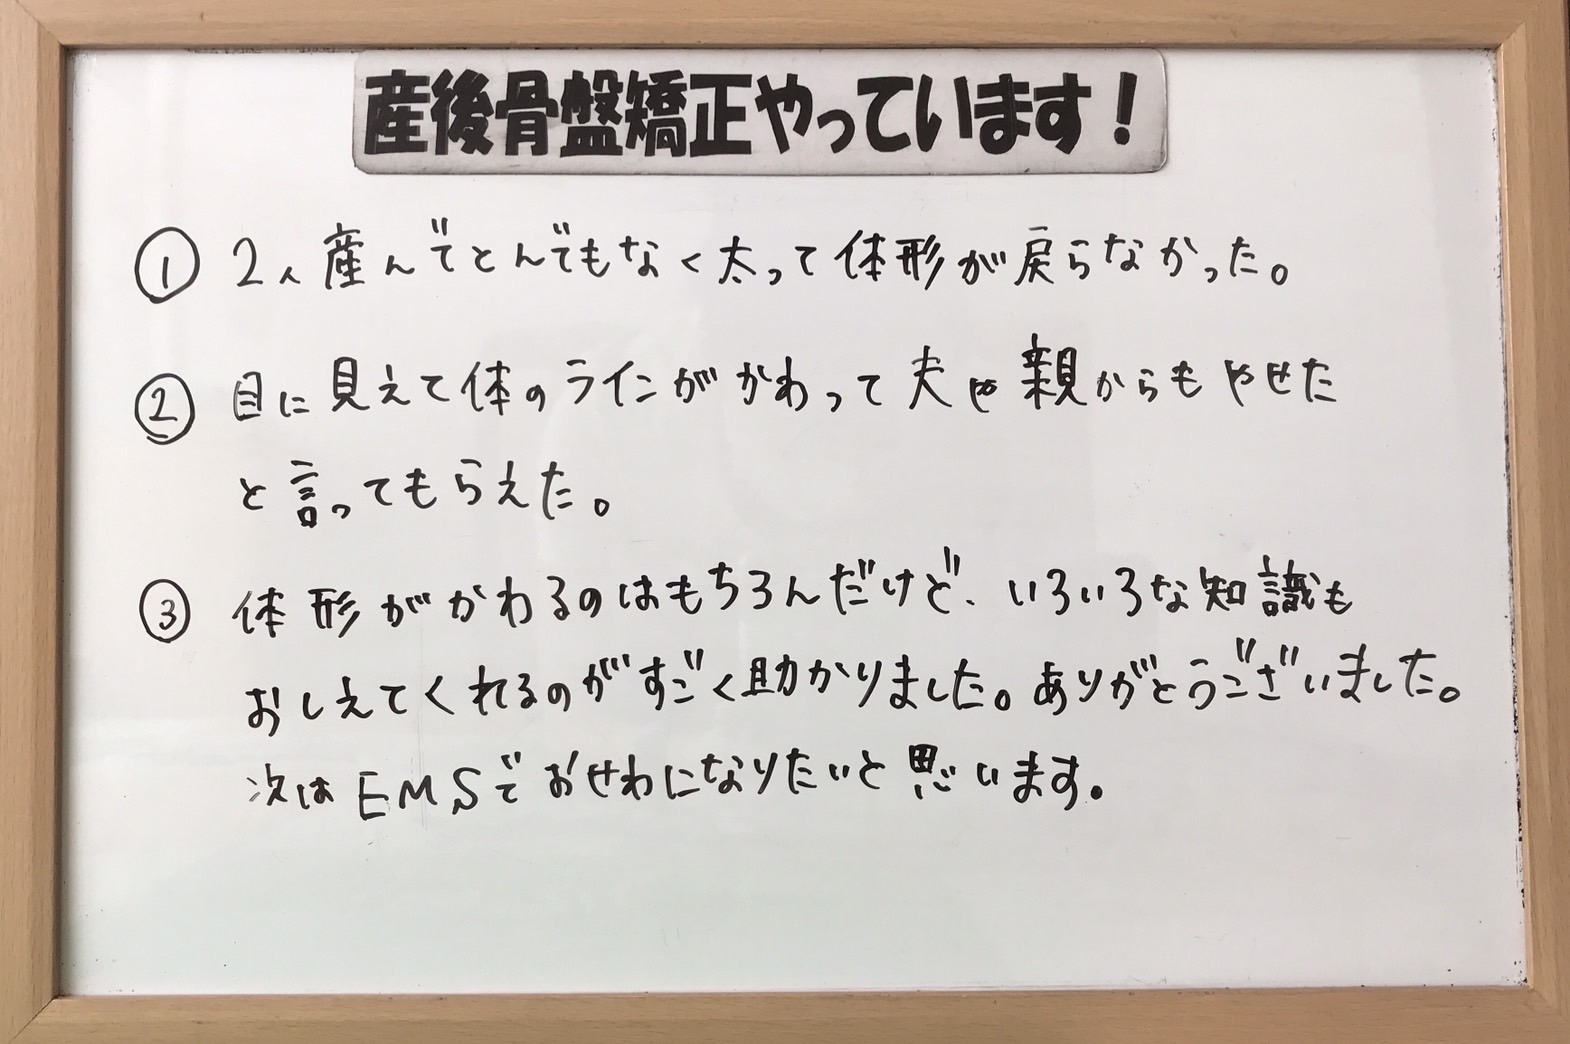 産後骨盤矯正やっています！
① 2人産んでとんでもなく太って体形が戻らなかった。
② 目に見えて体のラインがかわって夫や親からもやせた
と言ってもらえた。
③ 体形がかわるのはもちろんだけど、いろいろな知識も
おしえてくれるのがすごく助かりました。ありがとうございました。
次はEMSでおせわになりたいと思います。